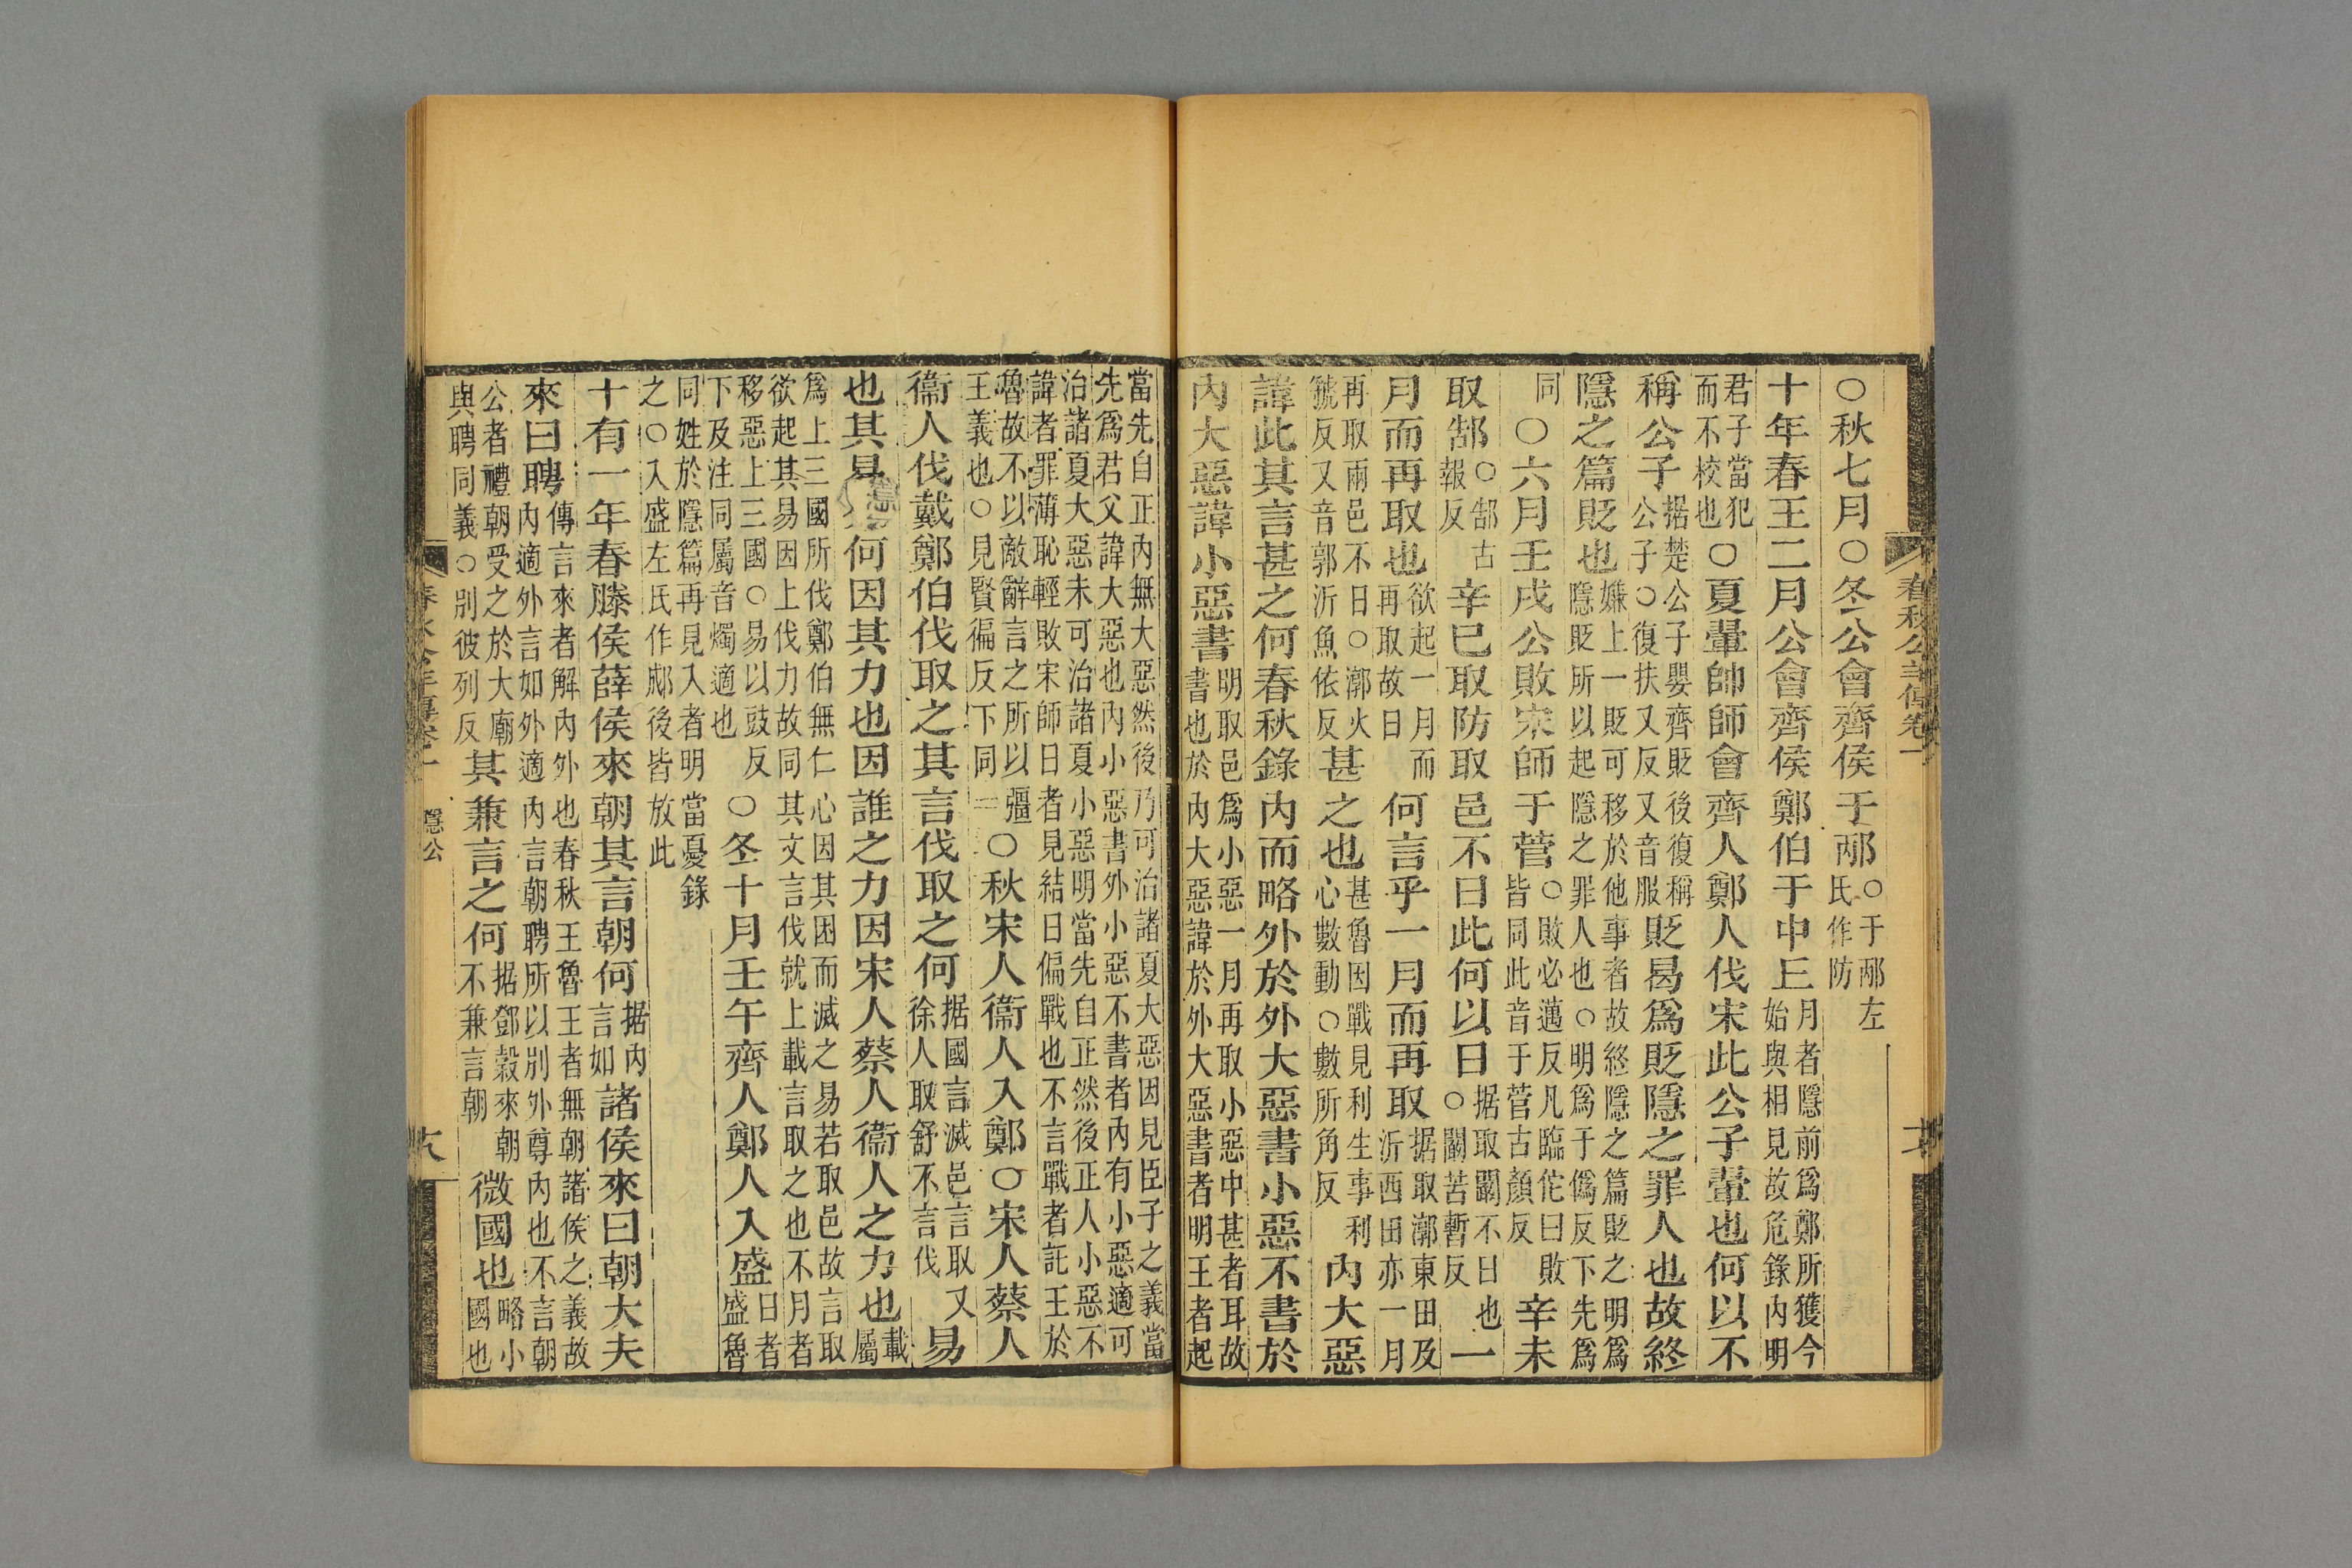 春秋公羊傳卷一
○秋七月○冬公會齊侯于邴○于邴左氏作防
十年春王二月公會齊侯鄭伯于中丘月者隱前爲鄭所獲今始與相見故危錄內明
君子當犯而不校也○夏翬帥師會齊人鄭人伐宋此公子翬也何以不
稱公子据楚公子嬰齊貶後復稱公子○復扶又反又音服貶曷爲貶隱之罪人也故終
隱之篇貶也嫌上一貶可移於他事者故終隱之篇貶之明爲隱貶所以起隱之罪人也○明爲于僞反下先爲
同○六月壬戌公敗宋師于菅○敗必邁反凡臨佗曰敗皆同此音于菅古顏反辛未
取郜○郜古報反辛巳取防取邑不日此何以日据取闞不日也○闞苦暫反一
月而再取也欲起一月而再取故日何言乎一月而再取据取漷東田及沂西田亦一月
再取兩邑不日○漷火虢反又音郭沂魚依反甚之也甚魯因戰見利生事利心數動○數所角反內大惡
諱此其言甚之何春秋錄內而略外於外大惡書小惡不書於
內大惡諱小惡書明取邑爲小惡一月再取小惡中甚者耳故書也於內大惡諱於外大惡書者明王者起
當先自正內無大惡然後乃可治諸夏大惡因見臣子之義當
先爲君父諱大惡也內小惡書外小惡不書者內有小惡適可
治諸夏大惡未可治諸夏小惡明當先自正然後正人小惡不
諱者罪薄恥輕敗宋師日者見結日偏戰也不言戰者託王於
魯故不以敵辭言之所以彊王義也○見賢徧反下同○秋宋人衞人入鄭○宋人蔡人
衞人伐戴鄭伯伐取之其言伐取之何据國言滅邑言取又徐人取舒不言伐易
也其易何因其力也因誰之力因宋人蔡人衞人之力也載屬
爲上三國所伐鄭伯無仁心因其困而滅之易若取邑故言取
欲起其易因上伐力故同其文言伐就上載言取之也不月者
移惡上三國○易以豉反下及注同屬音燭適也○冬十月壬午齊人鄭人入盛日者盛魯
同姓於隱篇再見入者明當憂錄
之○入盛左氏作郕後皆放此
十有一年春滕侯薛侯來朝其言朝何据內言如諸侯來曰朝大夫
來曰聘傳言來者解內外也春秋王魯王者無朝諸侯之義故內適外言如外適內言朝聘所以別外尊內也不言朝
公者禮朝受之於大廟與聘同義○別彼列反其兼言之何据鄧穀來朝不兼言朝微國也略小國也
隱公